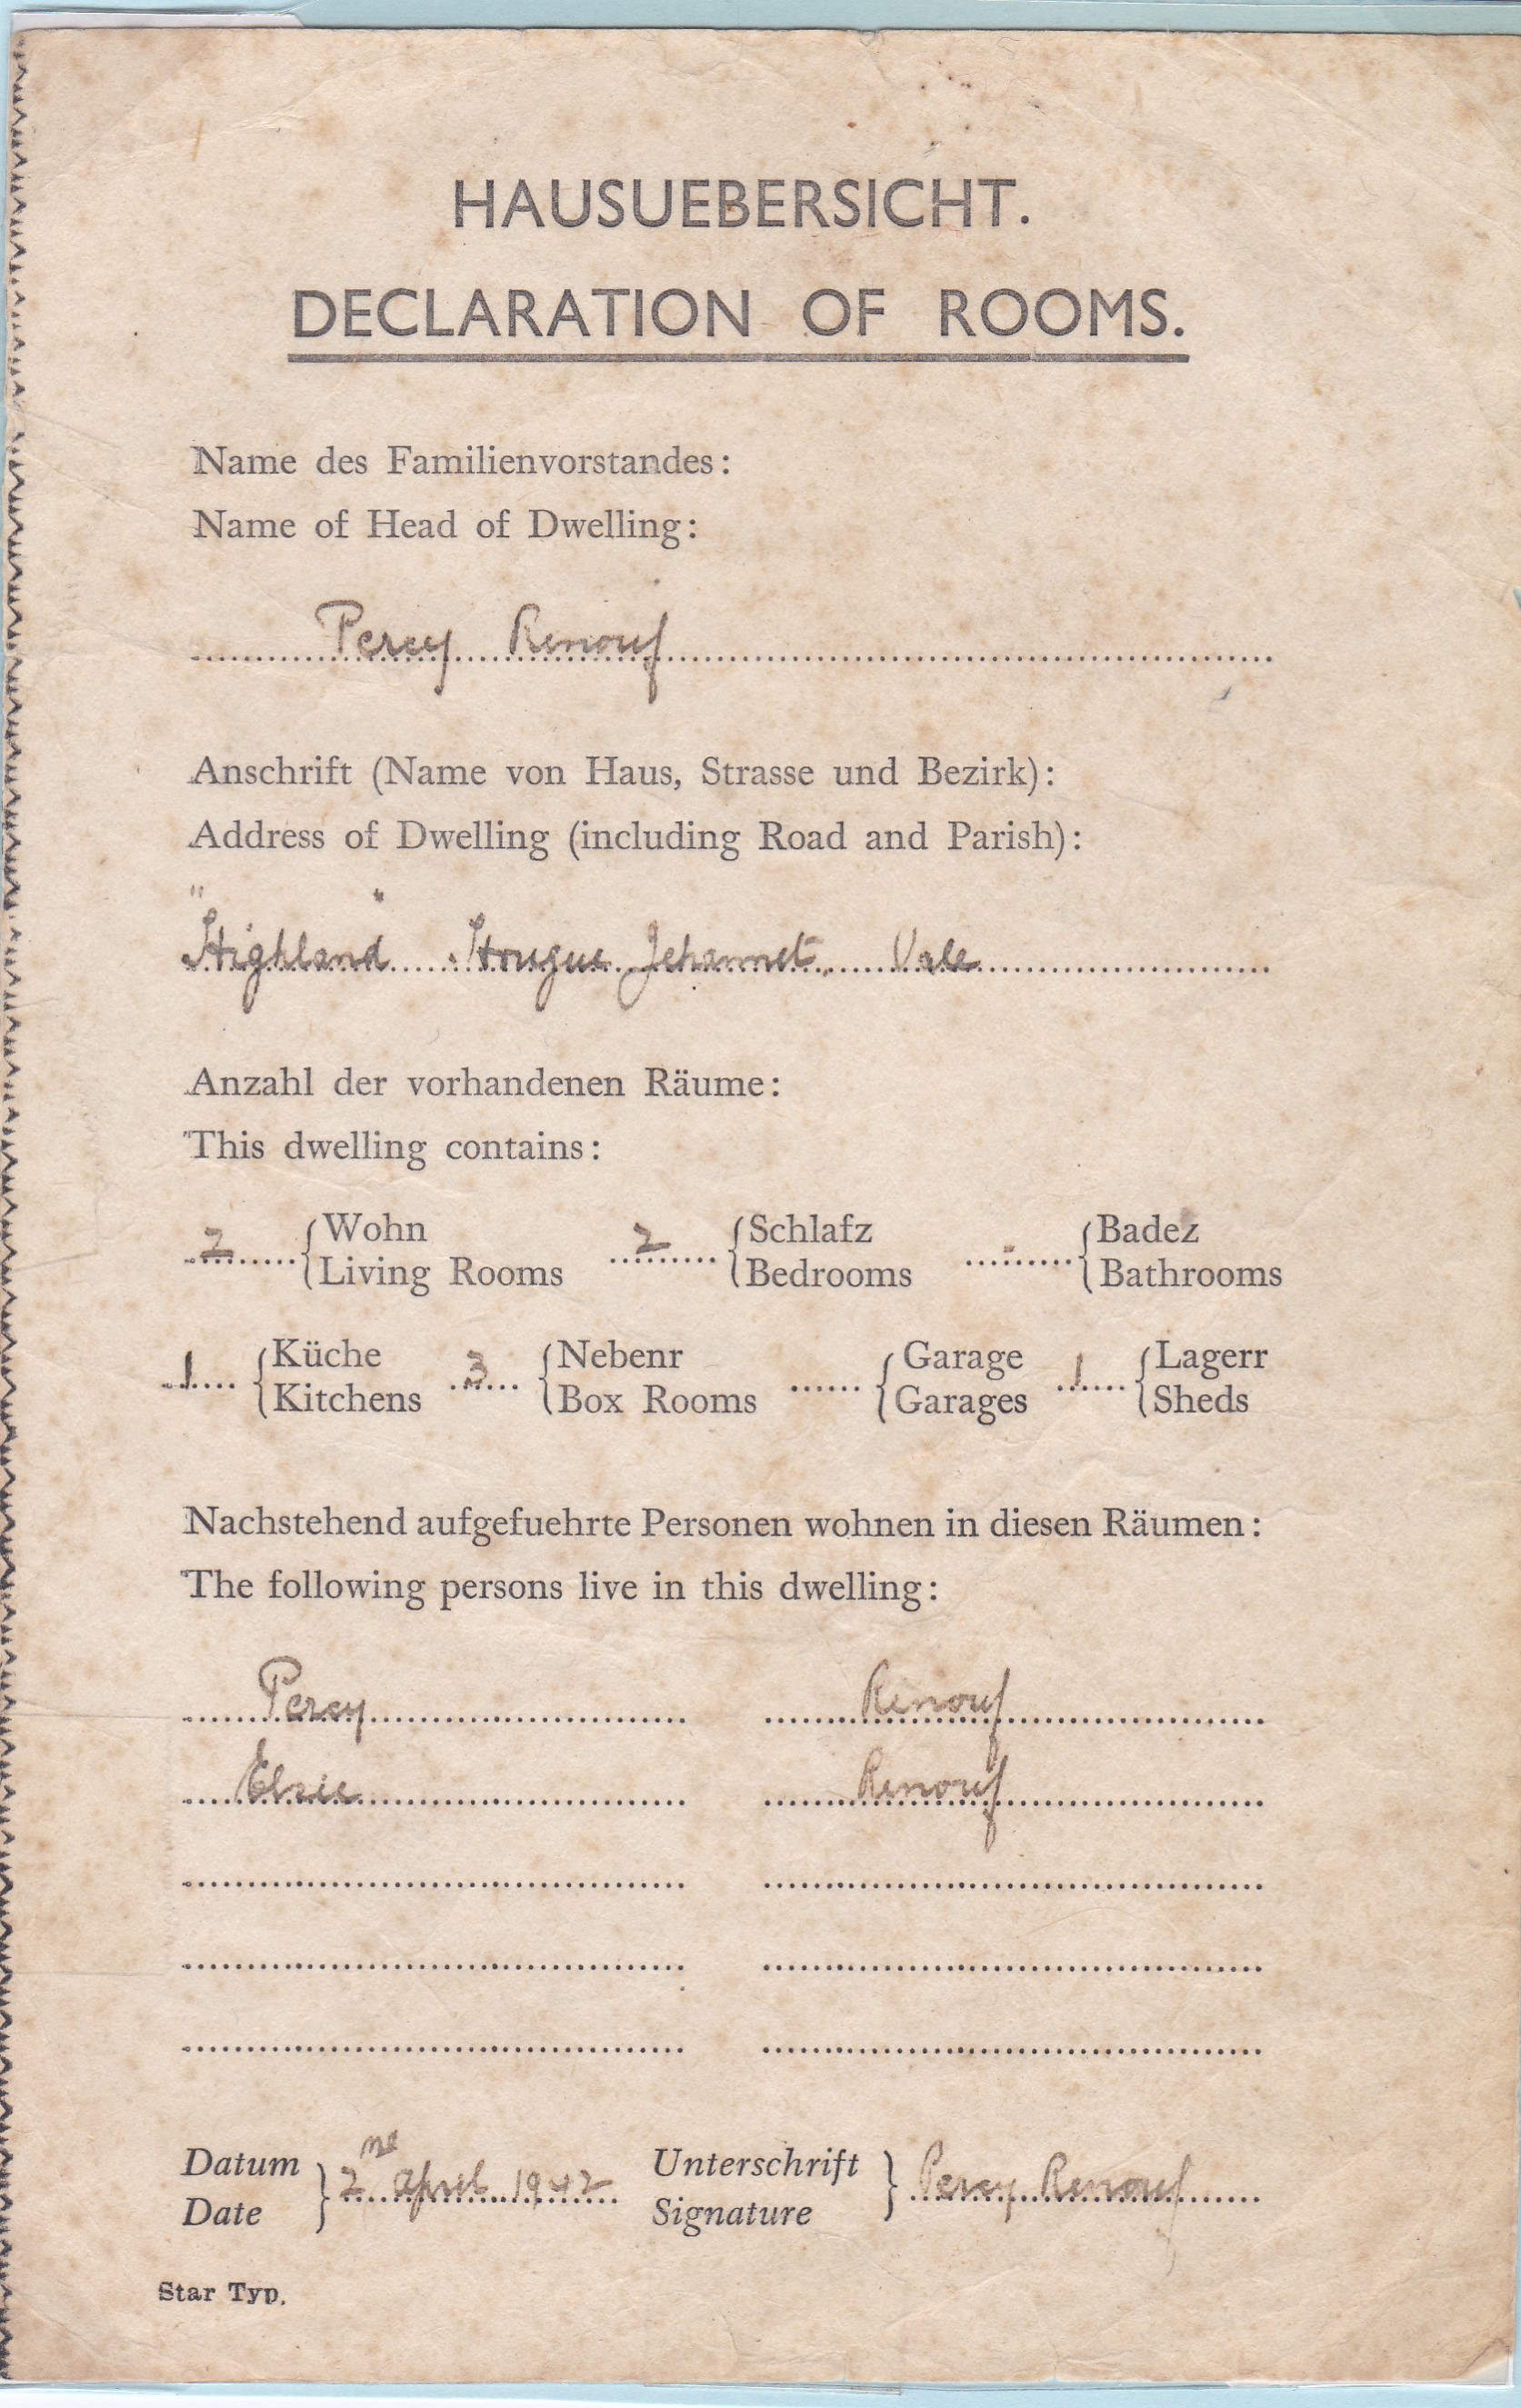 HAUSUEBERSICHT.
DECLARATION OF ROOMS.
Name des Familienvorstandes:
Name of Head of Dwelling:
Percy Renouf
Anschrift (Name von Haus, Strasse und Bezirk):
Address of Dwelling (including Road and Parish):
"Highland" Hougue Jehannet, Vale
Anzahl der vorhandenen Räume:
This dwelling contains:
2 { Wohn 2 { Schlafz - { Badez
Living Rooms Bedrooms Bathrooms
1 { Küche 3 { Nebenr { Garage 1 { Lagerr
Kitchens Box Rooms Garages Sheds
Nachstehend aufgefuehrte Personen wohnen in diesen Räumen:
The following persons live in this dwelling:
Percy Renouf
Elsie Renouf
Datum } 2nd April 1942 Unterschrift } Percy Renouf
Date Signature
Star Typ.